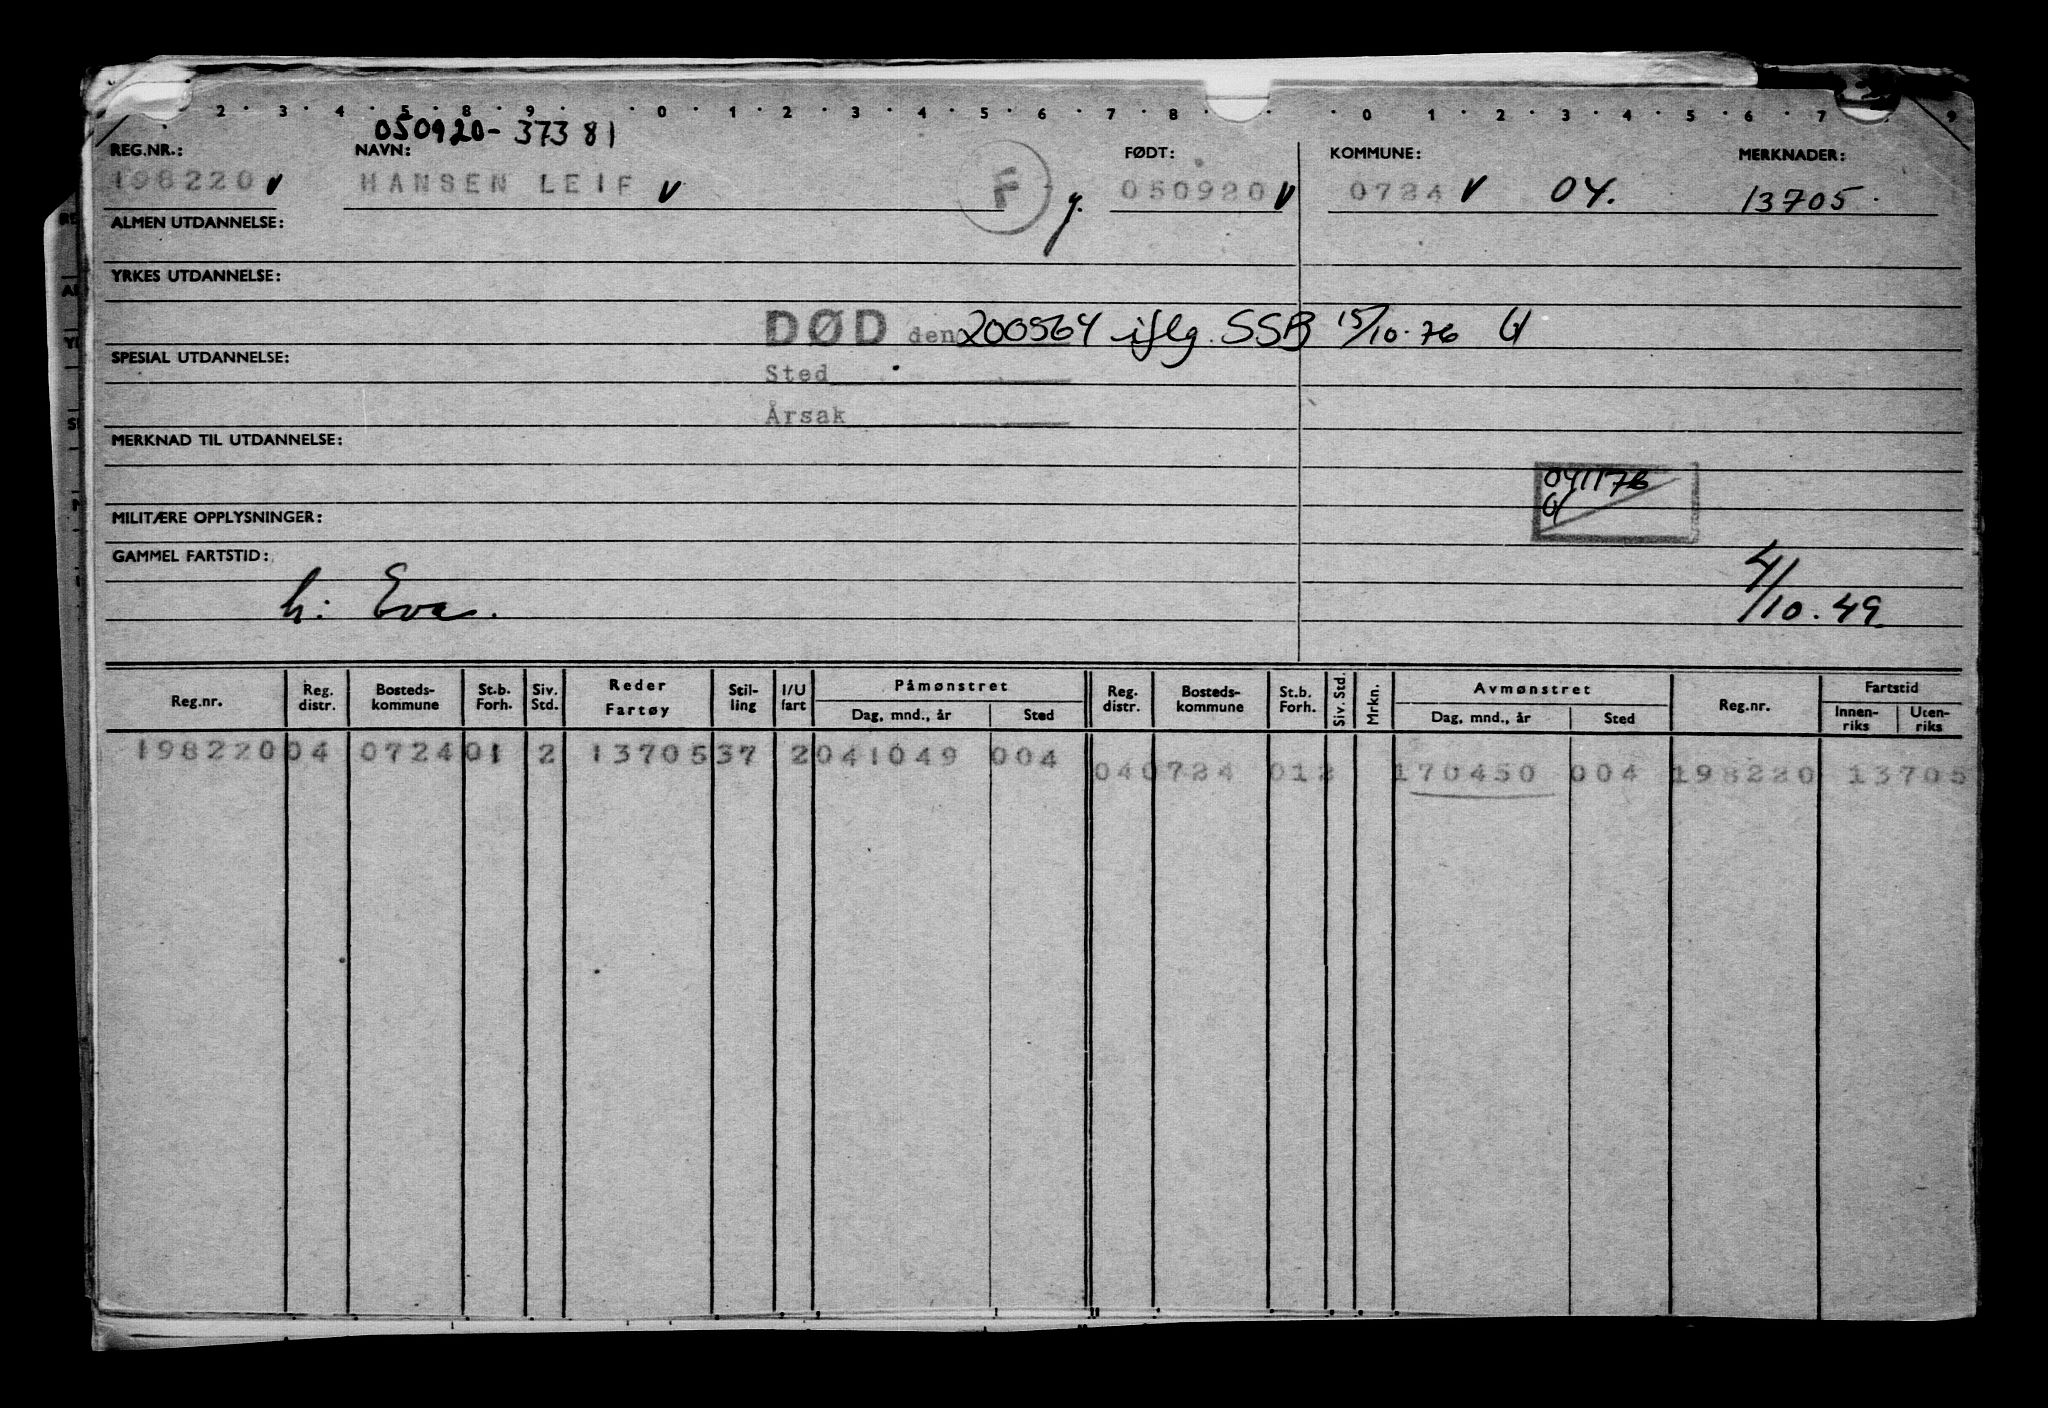 2 3 4 5 8 9 0 1 2 3 4 5 6 7 8 0 1 2 3 4 5 6 7 9
050920-37381
REG.NR.: NAVN: FØDT: KOMMUNE: MERKNADER:
198220 V HANSEN LEIF V F g. 050920 V 0724 V 04. 13705
ALMEN UTDANNELSE:
YRKES UTDANNELSE:
DØD den 200564 iflg. SSB 15/10-76
SPESIAL UTDANNELSE:
Sted
Årsak
MERKNAD TIL UTDANNELSE:
041176
MILITÆRE OPPLYSNINGER:
GAMMEL FARTSTID:
h: Eva. 4/10.49
Reg.nr. Reg. distr. Bosteds-kommune St.b. Forh. Siv. Std. Reder Fartøy Stil-ling I/U fart Påmønstret Dag, mnd., år Sted Reg. distr. Bosteds-kommune St.b. Forh. Siv. Std. Mrkn. Avmønstret Dag, mnd., år Sted Reg.nr. Fartstid Innen-riks Uten-riks
198220 04 0724 01 2 13705 37 2 041049 004
04 0724 01 2 170450 004 198220 13705